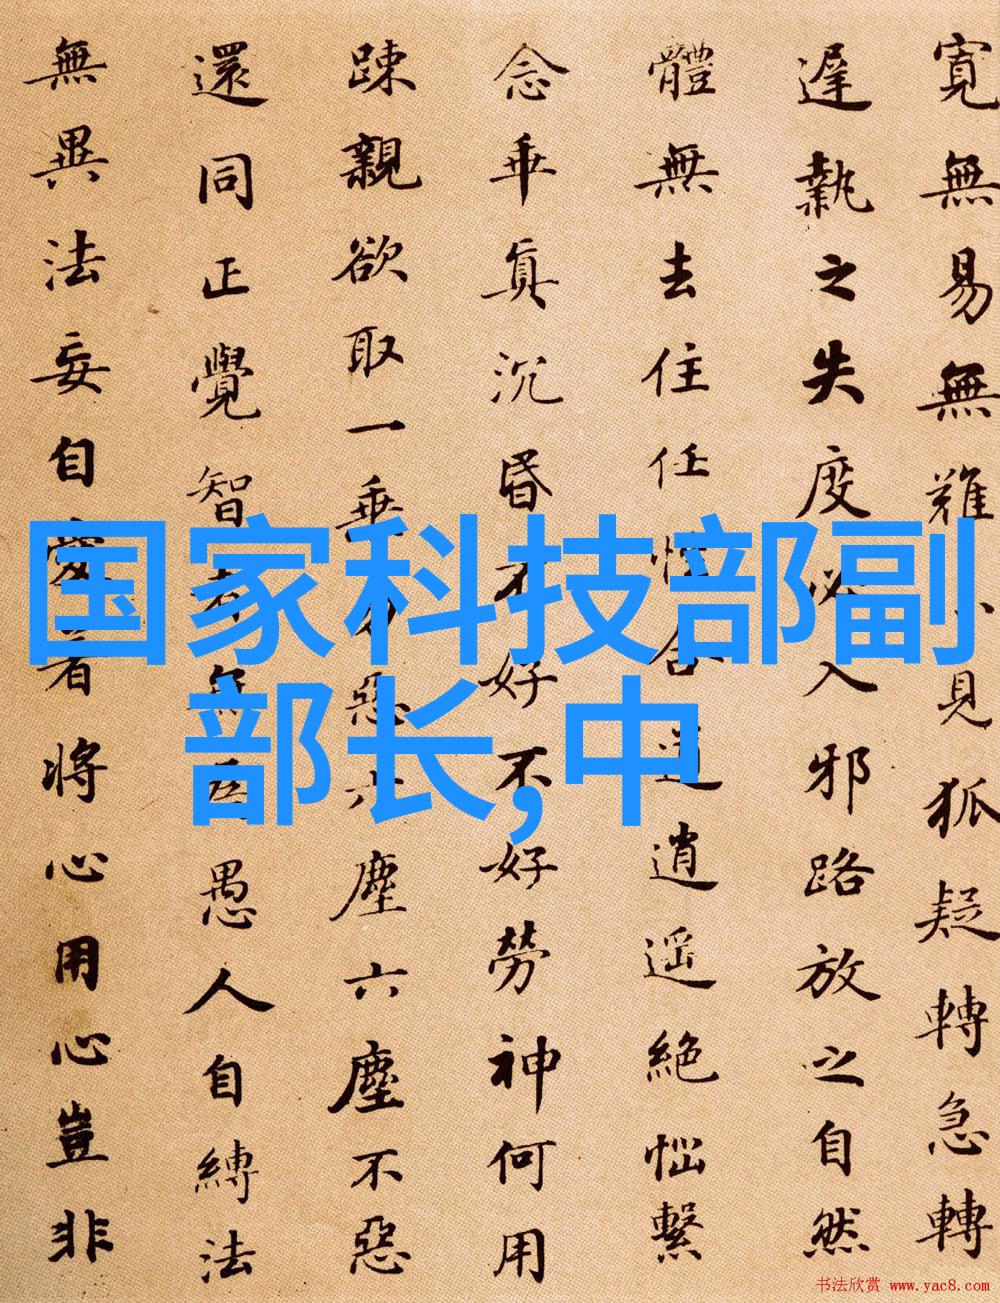 国家科技部副
部长,中
寬無易無難小見狐疑轉急轉
遲執之失度必入邪路放之自然
體無去住任性合道逍遥絕惱繫
念乖真沉昏不好不好勞神何用
踈親欲取一乘勿惡六塵六塵不惡
還同正覺智者無為愚人自縛法
無異法妄自愛著將心用心豈非
书法欣赏 www.yac8.com